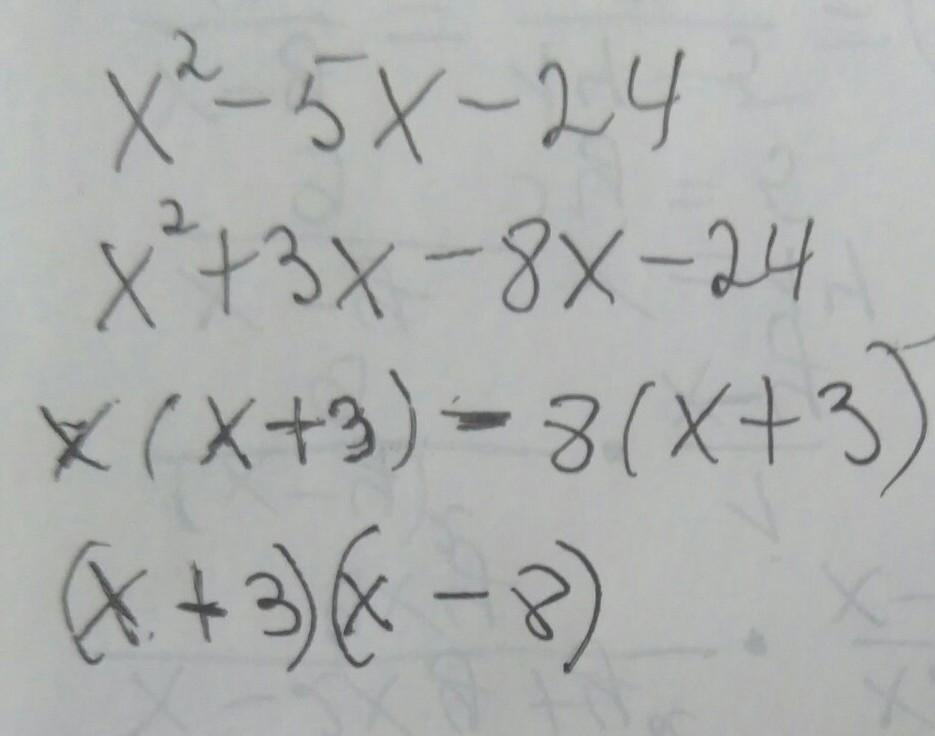 x² - 5x - 24
x² + 3x - 8x - 24
x(x+3) - 8(x+3)
(x + 3)(x - 8)